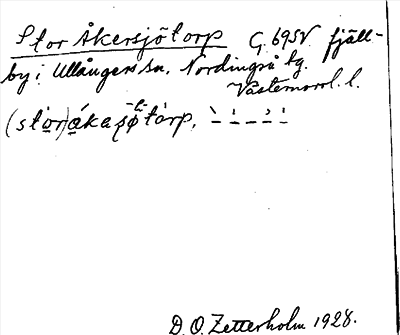 Stor Åkersjötorp G. 69SV. fjäll-
by i Ullångers sn. Nordingrå tg.
Västernorrl. l.
D. O. Zetterholm 1928.